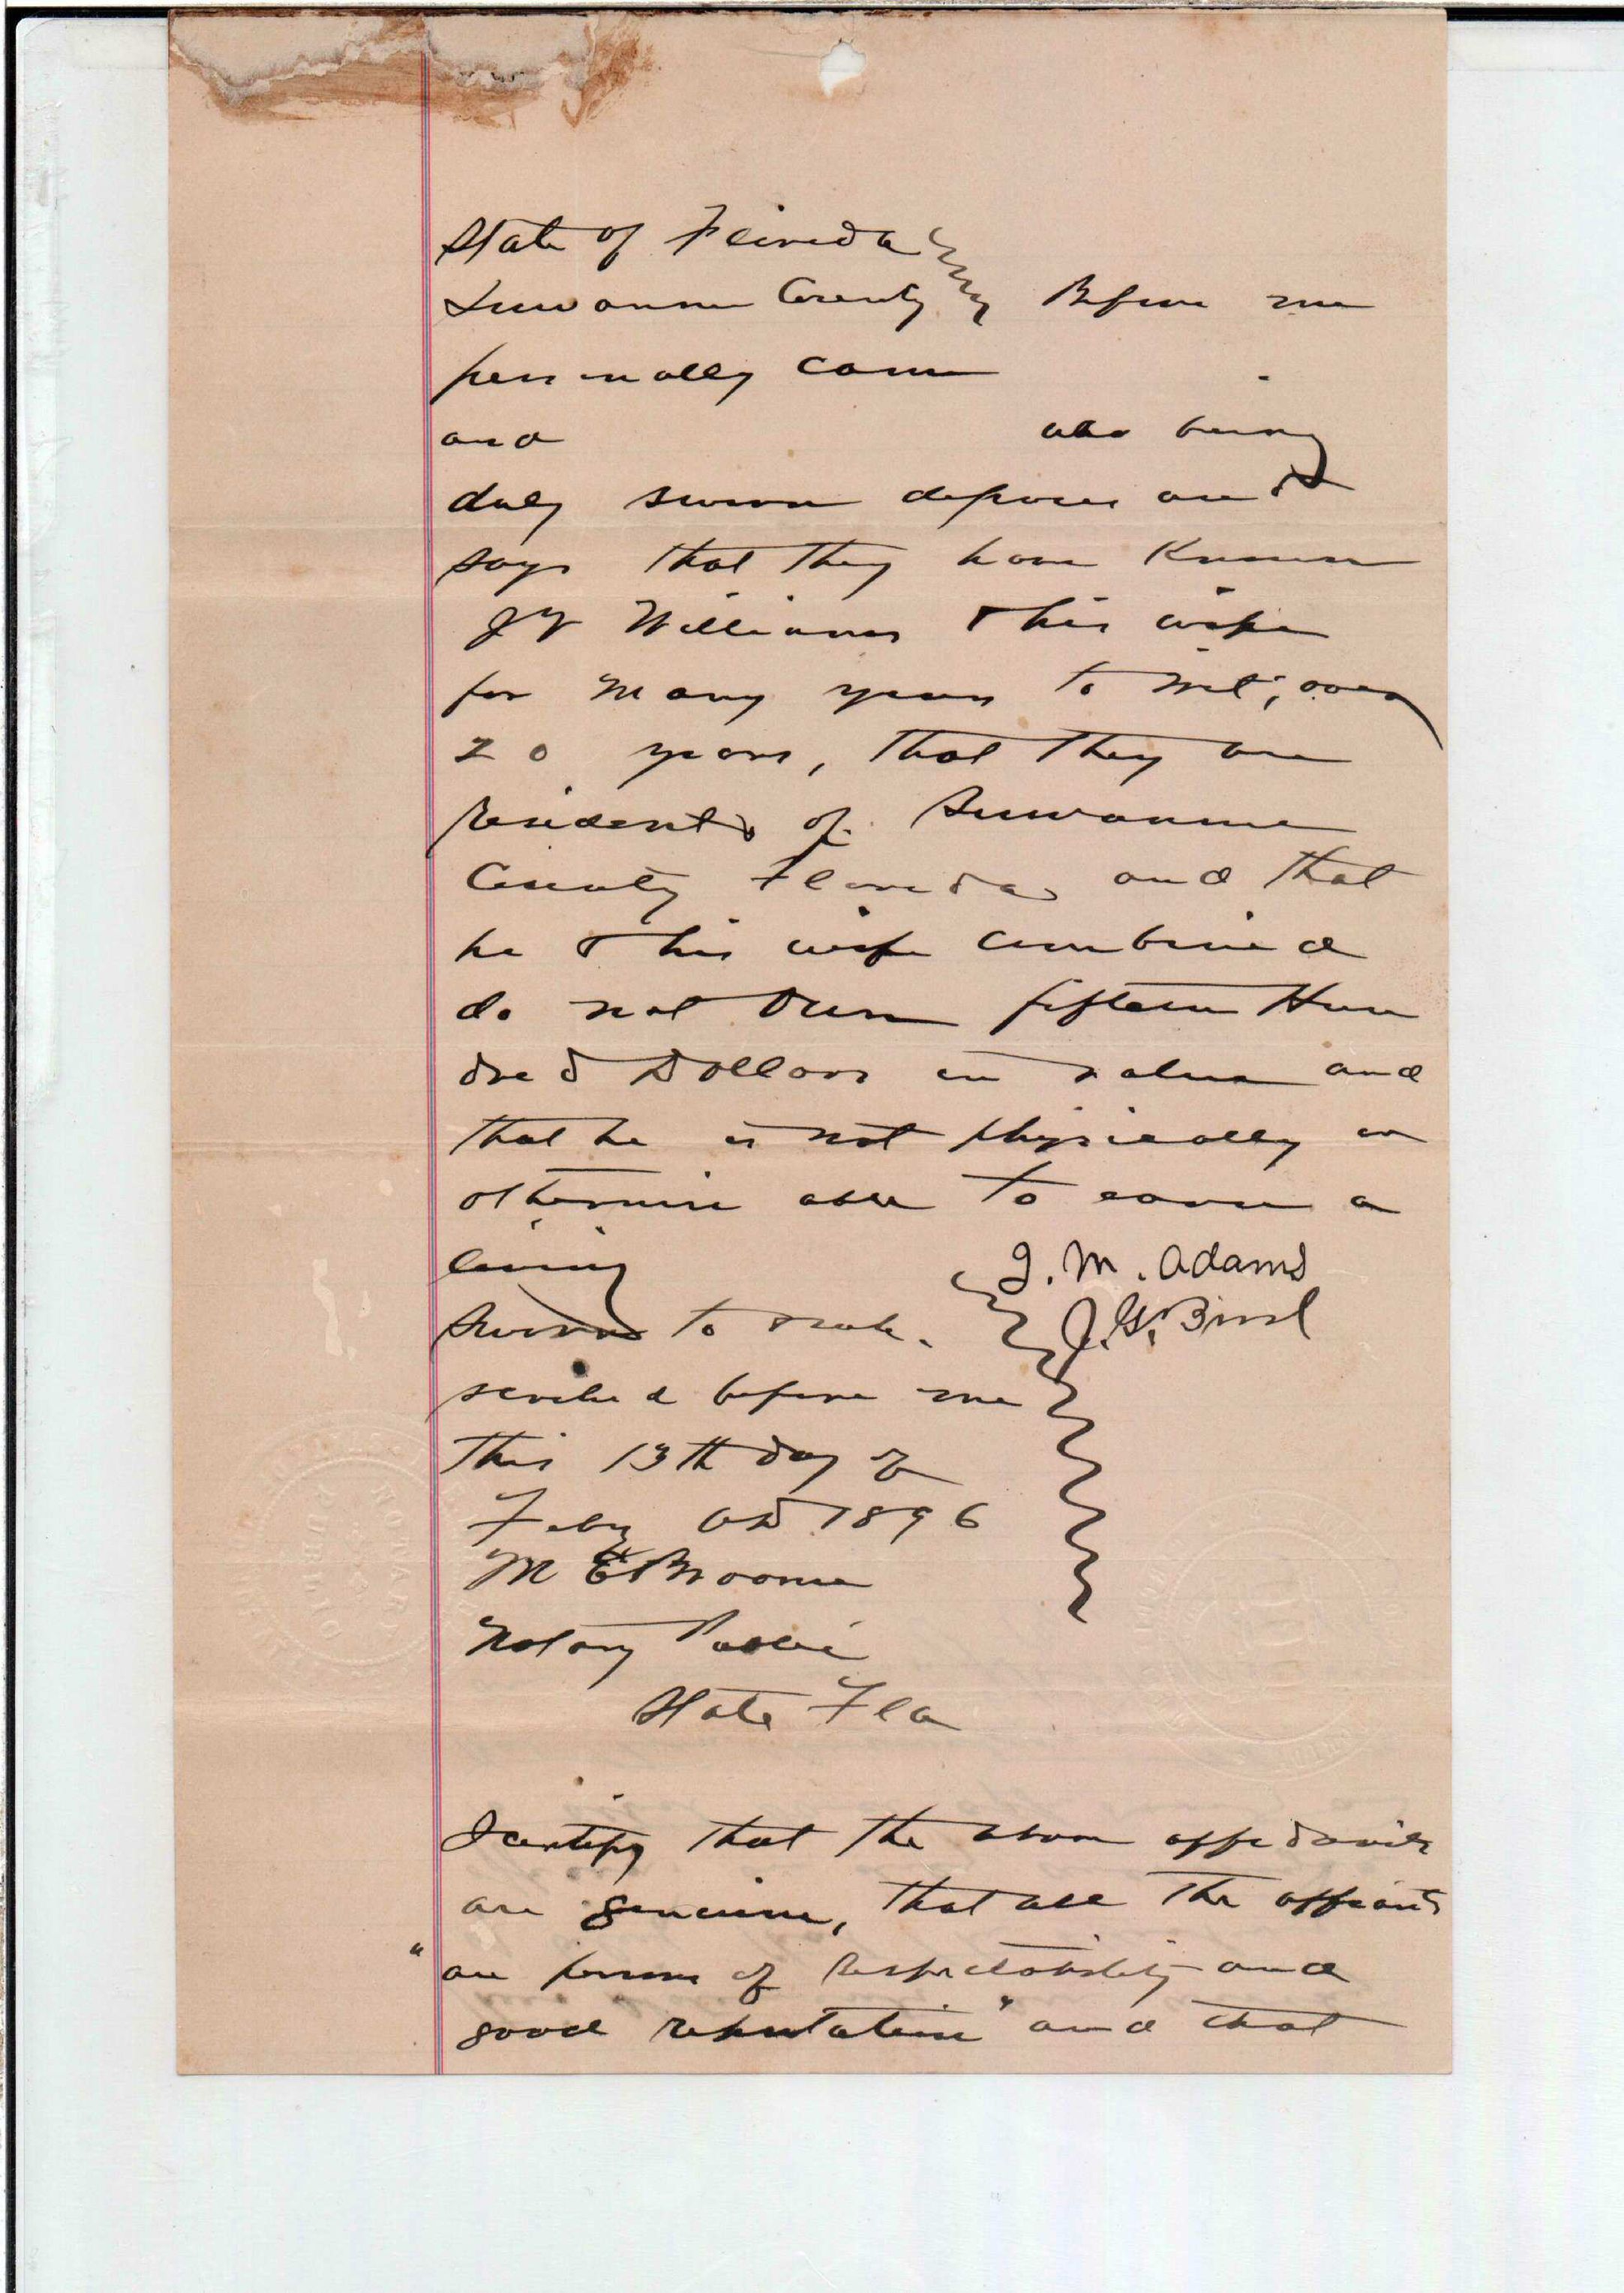 State of Florida
Suwannee County Before me
personally came
and who being
duly sworn deposes and
says that they have known
J Y Williams & his wife
for many years to wit; over
20 years, that they are
residents of Suwannee
County Florida and that
he & his wife combined
do not own fifteen Hun
dred Dollars in value and
that he is not physically or
otherwise able to earn a
living
J. M. Adams
Sworn to & sub-
J. G. Bird
scribed before me
this 13th day of
Feby AD 1896
M E Broome
Notary Public
State Fla
NOTARY PUBLIC
I certify that the above affidavits
are genuine, that all the affiants
"are persons of respectability and
good reputation" and that